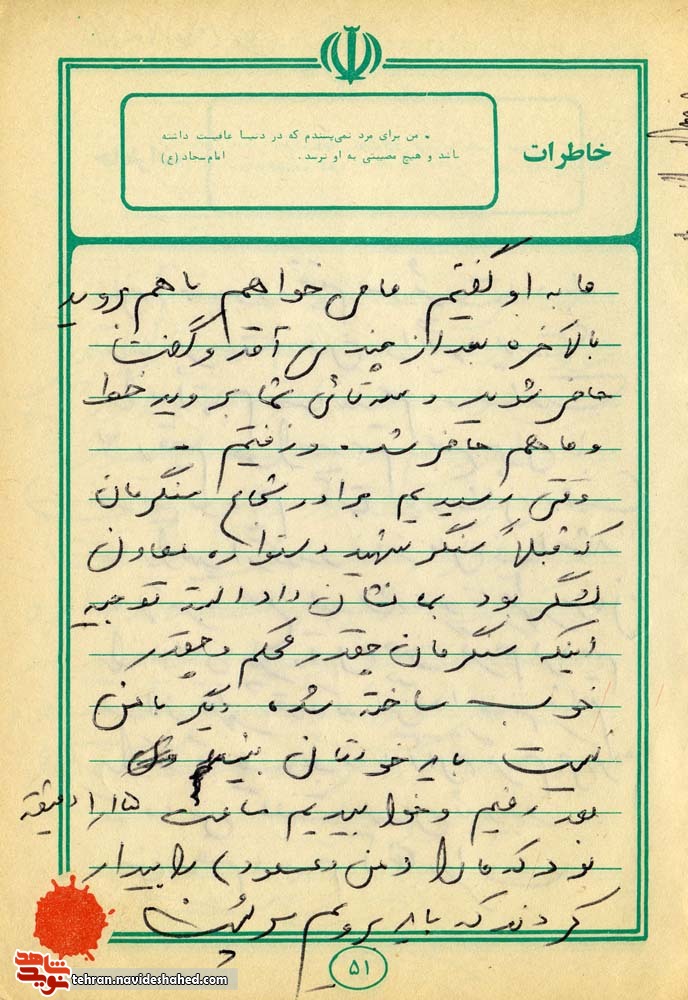 خاطرات
• من برای مرد نمی‌پسندم که در دنیا عافیت داشته
باشد و هیچ مصیبتی به او نرسد. امام سجاد (ع)
ما به او گفتیم ما می خواهیم با هم بروید
بالاخره بعد از چندی آمد و گفت
حاضر شوید و سه تائی شما بروید خط
و ما هم حاضر شد. و رفتیم.
وقتی رسیدیم برادر شجاع سنگرمان
که قبلاً سنگر شهید دستواره معاون
لشگر بود بما نشان داد البته توجیه
اینکه سنگرمان چقدر محکم و چقدر
خوب ساخته شده دیگر با من
نیست باید خودتان ببینید
بعد رفتیم و خوابیدیم ساعت ۱/۱۵ دقیقه
بود که ما را (من و مسعود) را بیدار
کردند که باید برویم سر پست
۵۱
نوید شاهد
tehran.navideshahed.com